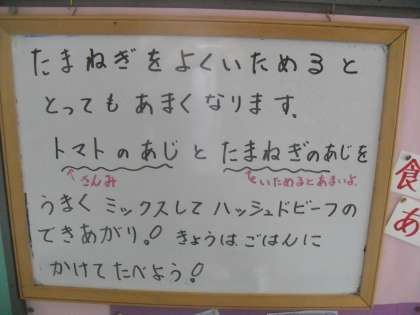 たまねぎをよくいためると
とってもあまくなります.
トマトのあじとたまねぎのあじを
さんみ
いためるとあまいよ.
うまくミックスしてハッシュドビーフの
できあがり! きょうはごはんに
かけてたべよう!
食
あ